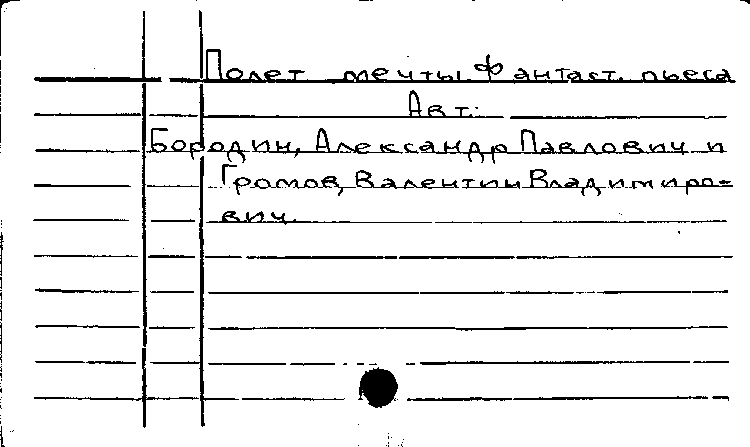 Полет мечты. Фантаст. пьеса
Авт.:
Бородин, Александр Павлович и
Громов, Валентин Владимиро-
вич.